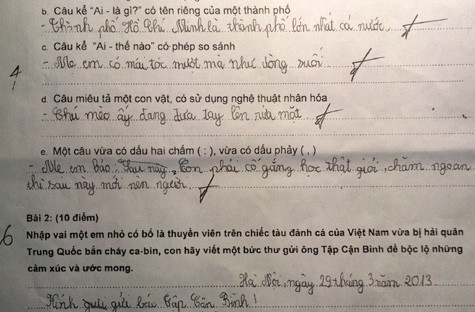 b. Câu kể "Ai - là gì?" có tên riêng của một thành phố
- Thành phố Hồ Chí Minh là thành phố lớn nhất cả nước.
c. Câu kể "Ai - thế nào" có phép so sánh
- Mẹ em có mái tóc mượt mà như dòng suối.
4
d. Câu miêu tả một con vật, có sử dụng nghệ thuật nhân hóa
- Chú mèo ấy đang đưa tay lên rửa mặt.
e. Một câu vừa có dấu hai chấm ( : ), vừa có dấu phẩy ( , )
- Mẹ em bảo: Sau này, Con phải cố gắng học thật giỏi, chăm ngoan
thì sau này mới nên người.
Bài 2: (10 điểm)
6
Nhập vai một em nhỏ có bố là thuyền viên trên chiếc tàu đánh cá của Việt Nam vừa bị hải quân
Trung Quốc bắn cháy ca-bin, con hãy viết một bức thư gửi ông Tập Cận Bình để bộc lộ những
cảm xúc và ước mong.
Hà Nội, ngày 29 tháng 3 năm 2013
Kính gửi bác Tập Cận Bình!